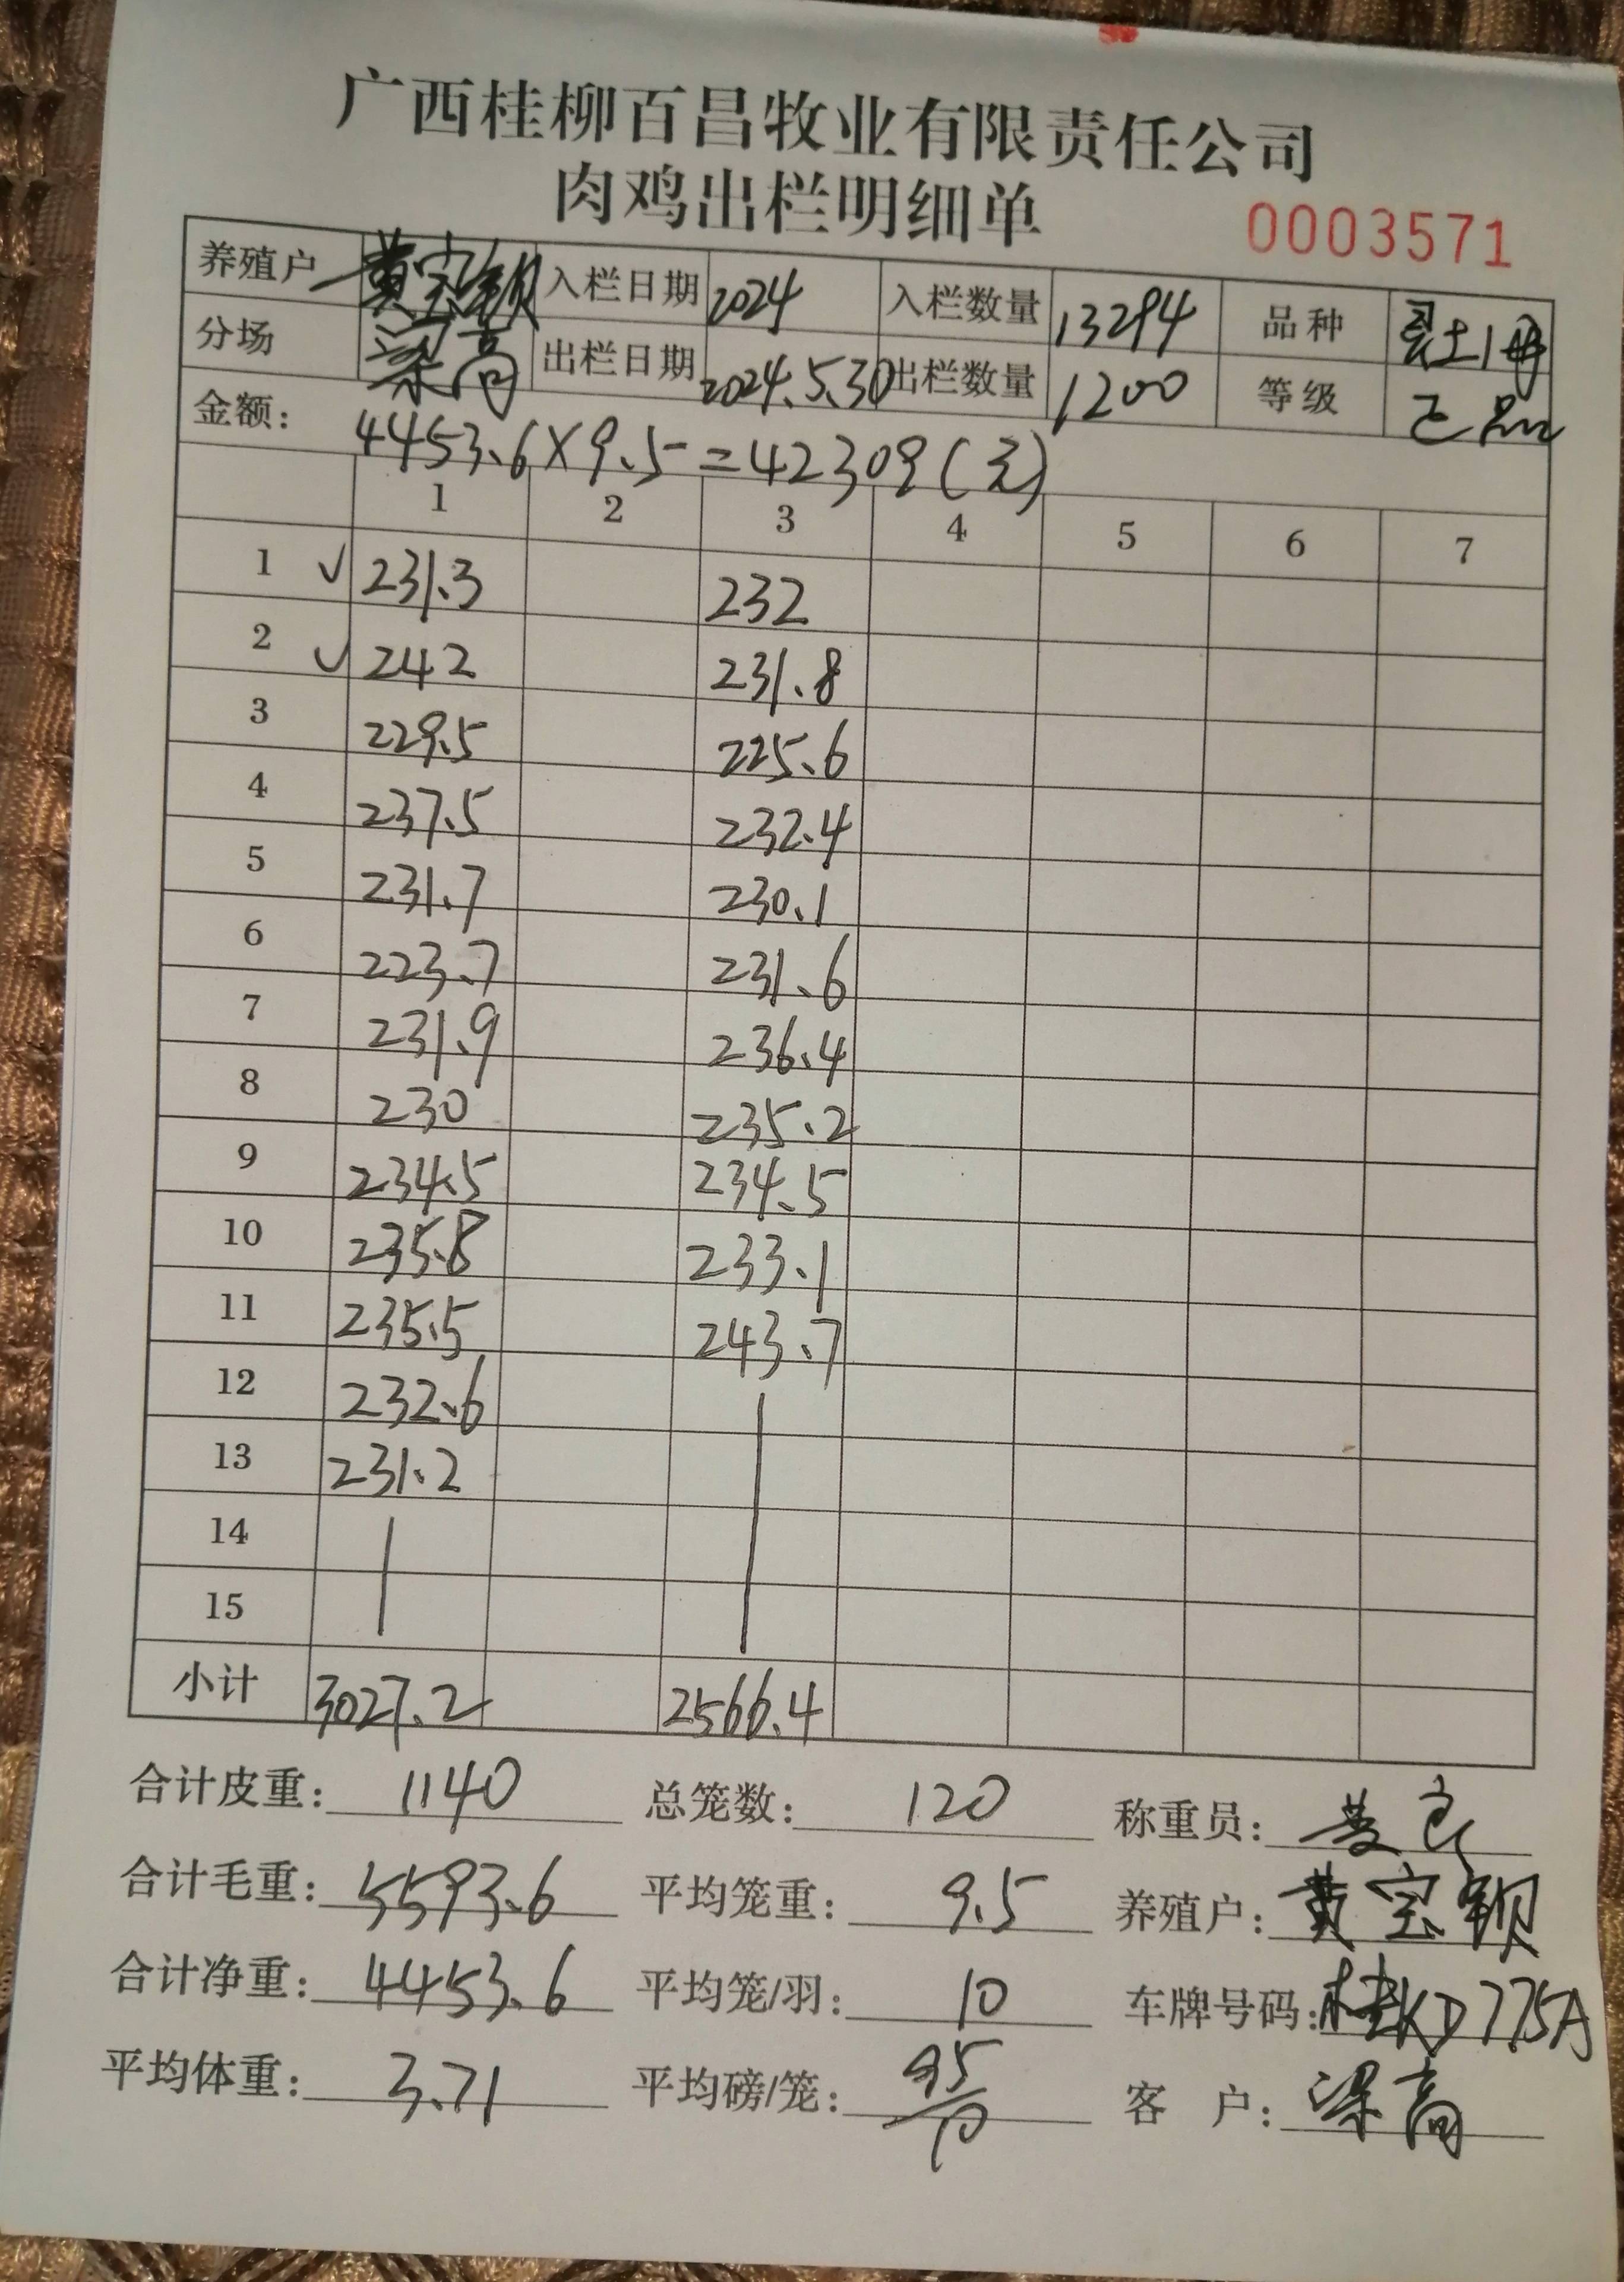 广西桂柳百昌牧业有限责任公司
肉鸡出栏明细单
0003571
养殖户 黄宝钡 入栏日期 2024 入栏数量 13294 品种 土1号
分场 梁高 出栏日期 2024.5.30 出栏数量 1200 等级 正品
金额: 4453.6×9.5=42309(元)
1 2 3 4 5 6 7
1 ✓ 231.3 232
2 ✓ 242 231.8
3 229.5 225.6
4 237.5 232.4
5 231.7 230.1
6 223.7 231.6
7 231.9 236.4
8 230 235.2
9 234.5 234.5
10 235.8 233.1
11 235.5 243.7
12 232.6
13 231.2
14
15
小计 3027.2 2566.4
合计皮重: 1140 总笼数: 120 称重员:
合计毛重: 5593.6 平均笼重: 9.5 养殖户: 黄宝钡
合计净重: 4453.6 平均笼/羽: 10 车牌号码: 桂KD775A
平均体重: 3.71 平均磅/笼: 95/10 客 户: 梁高